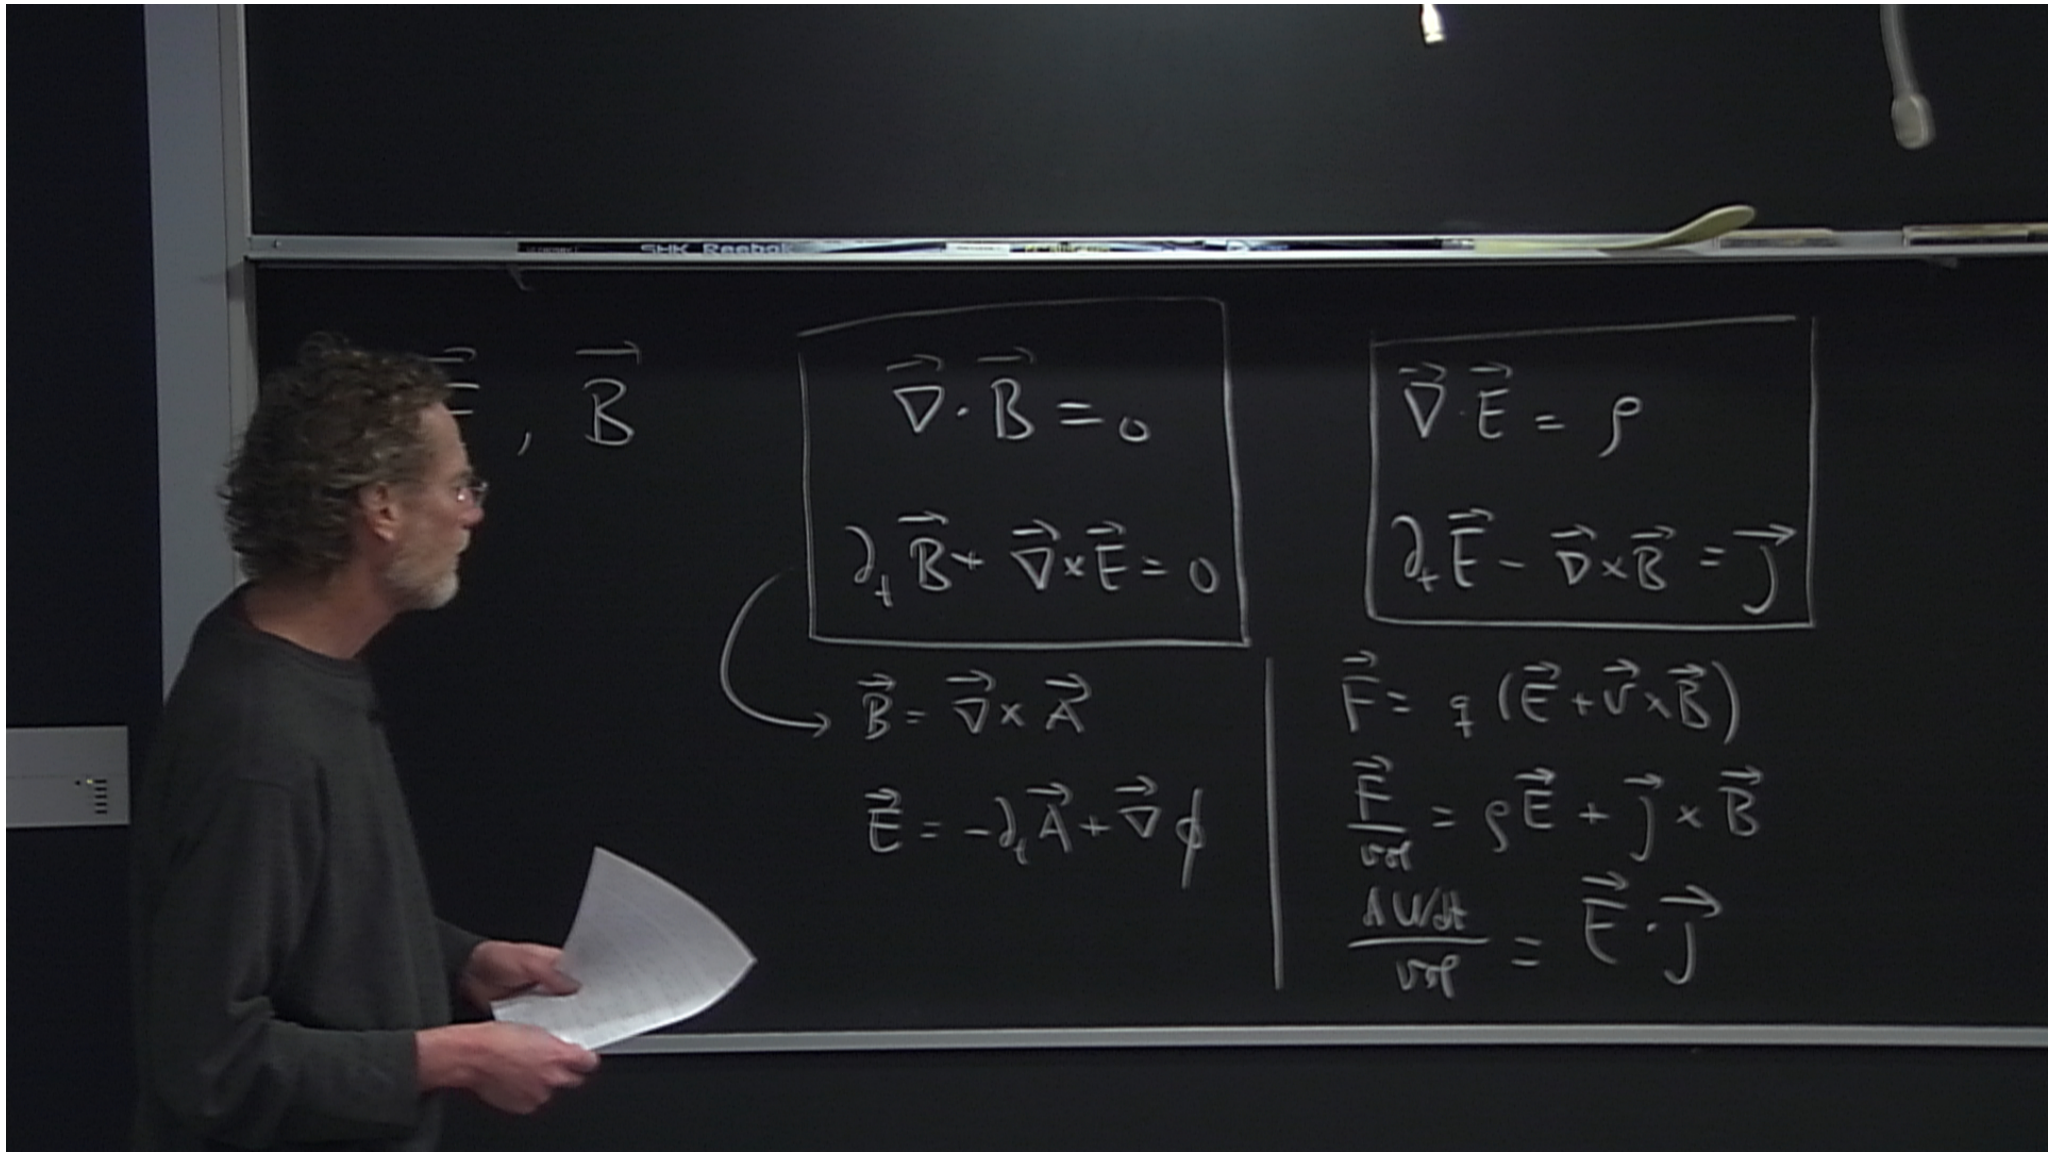 SHK Reebok
E⃗ , B⃗
∇⃗ · B⃗ = 0
∂ₜ B⃗ + ∇⃗ × E⃗ = 0
B⃗ = ∇⃗ × A⃗
E⃗ = -∂ₜ A⃗ + ∇⃗ ϕ
∇⃗ · E⃗ = ρ
∂ₜ E⃗ - ∇⃗ × B⃗ = j⃗
F⃗ = q (E⃗ + v⃗ × B⃗)
F⃗/vol = ρE⃗ + j⃗ × B⃗
ΔU/dt / vol = E⃗ · j⃗